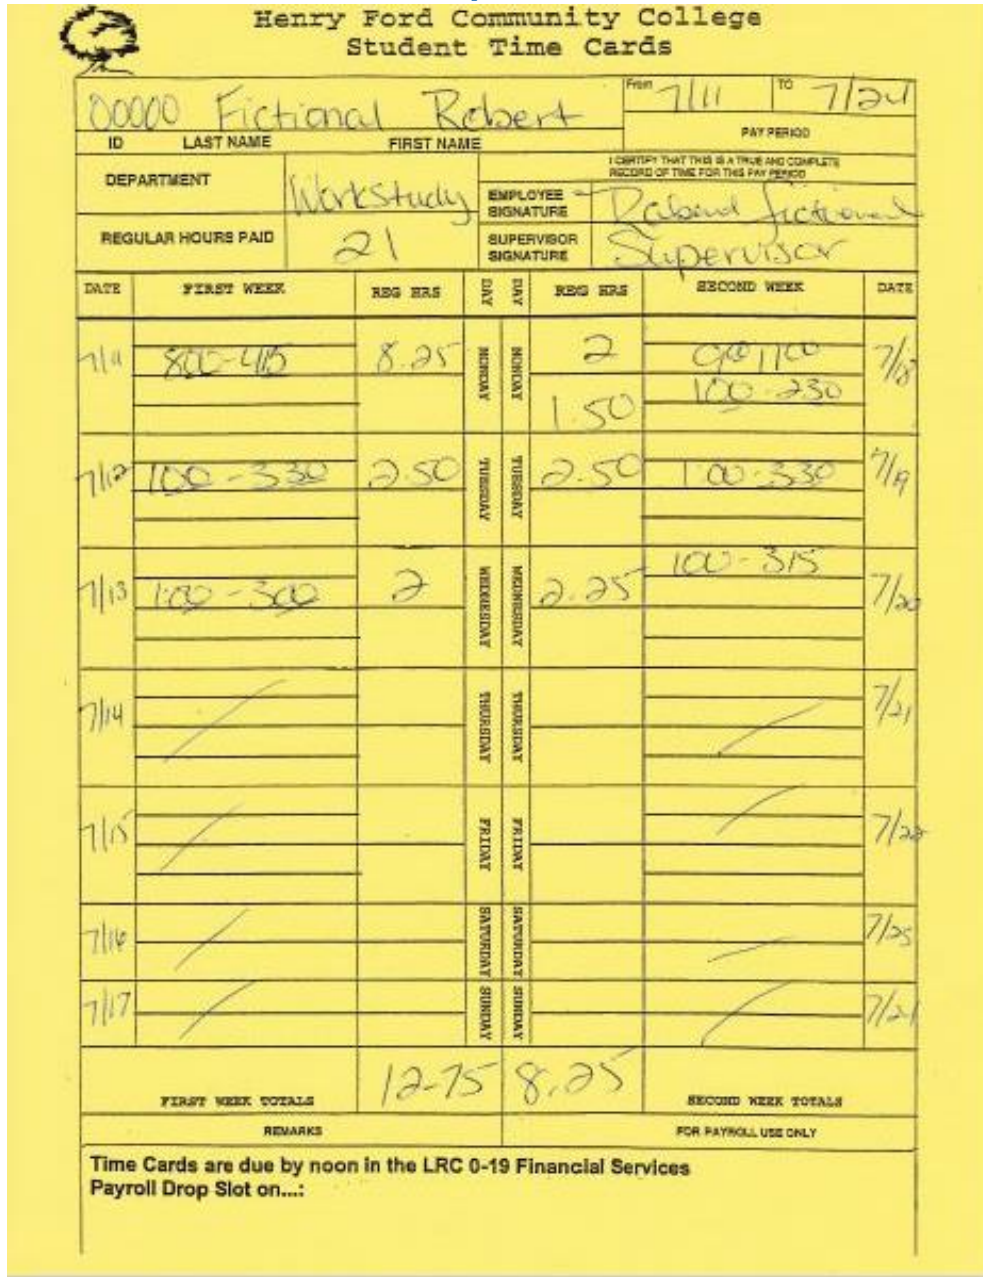 Henry Ford Community College
Student Time Cards
00000 Fictional Robert
From 7/11 TO 7/24
ID LAST NAME FIRST NAME
PAY PERIOD
I CERTIFY THAT THIS IS A TRUE AND COMPLETE
RECORD OF TIME FOR THIS PAY PERIOD
DEPARTMENT Workstudy
EMPLOYEE
SIGNATURE
REGULAR HOURS PAID 21
SUPERVISOR
SIGNATURE Supervisor
DATE FIRST WEEK REG HRS DAY DAY REG HRS SECOND WEEK DATE
7/11 800-415 8.25 MONDAY MONDAY 2 7/18
1.50 100-230
7/12 100-330 2.50 TUESDAY TUESDAY 2.50 1:00-330 7/19
7/13 1:00-300 2 WEDNESDAY WEDNESDAY 2.25 100-315 7/20
7/14 THURSDAY THURSDAY 7/21
7/15 FRIDAY FRIDAY 7/22
7/16 SATURDAY SATURDAY
7/17 SUNDAY SUNDAY
12-75 8.25
FIRST WEEK TOTALS SECOND WEEK TOTALS
REMARKS FOR PAYROLL USE ONLY
Time Cards are due by noon in the LRC 0-19 Financial Services
Payroll Drop Slot on...: